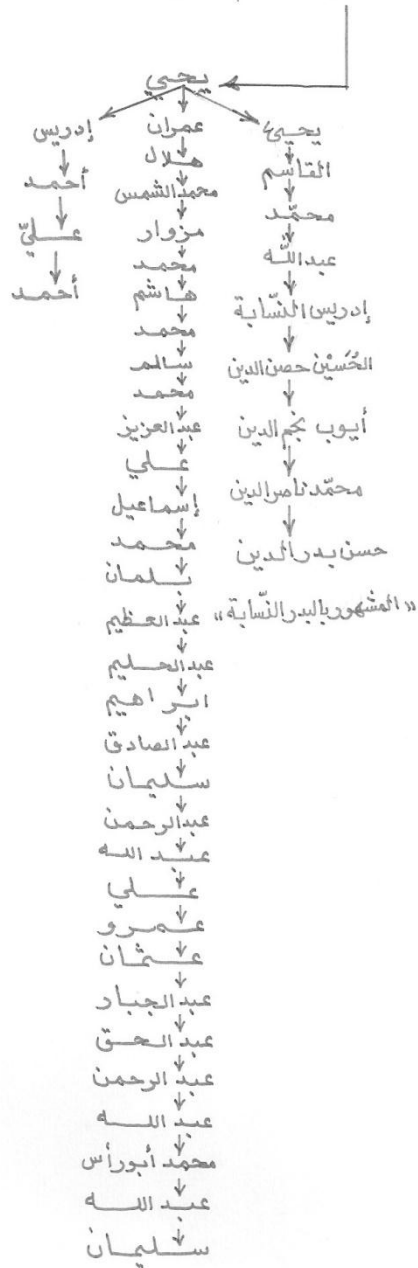 يحيي
يحيى
القاسم
محمّد
عبد اللّه
إدريس النسّابة
الحُسَيْن حصن الدين
أيوب نجم الدين
محمّد ناصر الدين
حسن بدر الدين
«المشهور بالبدر النسّابة»
عمران
هلال
محمد الشمس
مزوار
محمد
هاشم
محمد
سالم
محمد
عبد العزيز
علي
إسماعيل
محمد
بلمان
عبد العظيم
عبد الحليم
ابراهيم
عبد الصادق
سليمان
عبد الرحمن
عبد الله
علي
عمرو
عثمان
عبد الجبار
عبد الحق
عبد الرحمن
عبد الله
محمد أبو رأس
عبد الله
سليمان
إدريس
أحمد
عليّ
أحمد